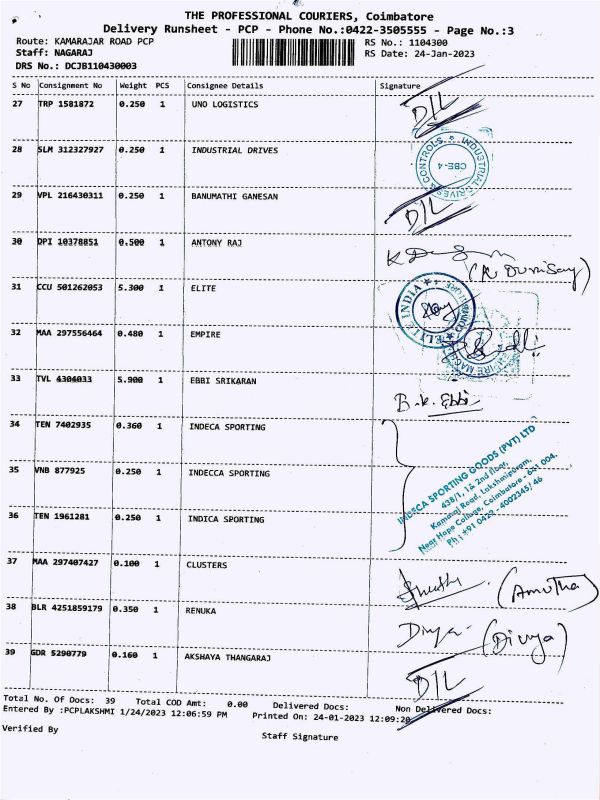 THE PROFESSIONAL COURIERS, Coimbatore
Delivery Runsheet - PCP - Phone No.:0422-3505555 - Page No.:3
Route: KAMARAJAR ROAD PCP RS No.: 1104300
Staff: NAGARAJ RS Date: 24-Jan-2023
DRS No.: DCJB110430003
S No Consignment No Weight PCS Consignee Details Signature
27 TRP 1581872 0.250 1 UNO LOGISTICS D/L
28 SLM 312327927 0.250 1 INDUSTRIAL DRIVES
INDUSTRIAL DRIVES & CONTROLS
CBE-4
29 VPL 216430311 0.250 1 BANUMATHI GANESAN D/L
30 DPI 10378851 0.500 1 ANTONY RAJ
31 CCU 501262053 5.300 1 ELITE
ELITE INDIA
32 MAA 297556464 0.480 1 EMPIRE
33 TVL 4304033 5.900 1 EBBI SRIKARAN
B.K. Ebbi
34 TEN 7402935 0.360 1 INDECA SPORTING
35 VNB 877925 0.250 1 INDECCA SPORTING
36 TEN 1961281 0.250 1 INDICA SPORTING
INDECA SPORTING GOODS (PVT) LTD
438/1, 1& 2nd floor,
Kamaraj Road, Lakshmipuram,
Near Hope College, Coimbatore - 641 004.
Ph : +91 0422 - 4002345/ 46
37 MAA 297407427 0.100 1 CLUSTERS (Amutha)
38 BLR 4251859179 0.350 1 RENUKA Divya (Divya)
39 GDR 5290779 0.160 1 AKSHAYA THANGARAJ D/L
Total No. Of Docs: 39 Total COD Amt: 0.00 Delivered Docs: Non Delivered Docs:
Entered By :PCPLAKSHMI 1/24/2023 12:06:59 PM Printed On: 24-01-2023 12:09:20
Verified By Staff Signature